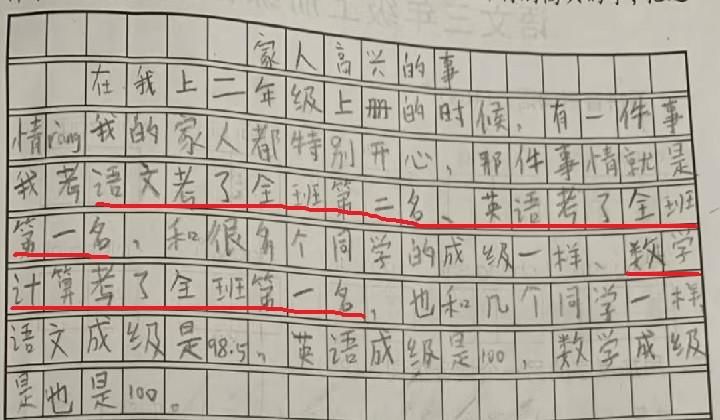 家人高兴的事
在我上二年级上册的时候，有一件事
情ràng我的家人都特别开心，那件事情就是
我考语文考了全班第二名、英语考了全班
第一名，和很多个同学的成级一样、数学
计算考了全班第一名，也和几个同学一样，
语文成级是98.5，英语成级是100，数学成级
是也是100。